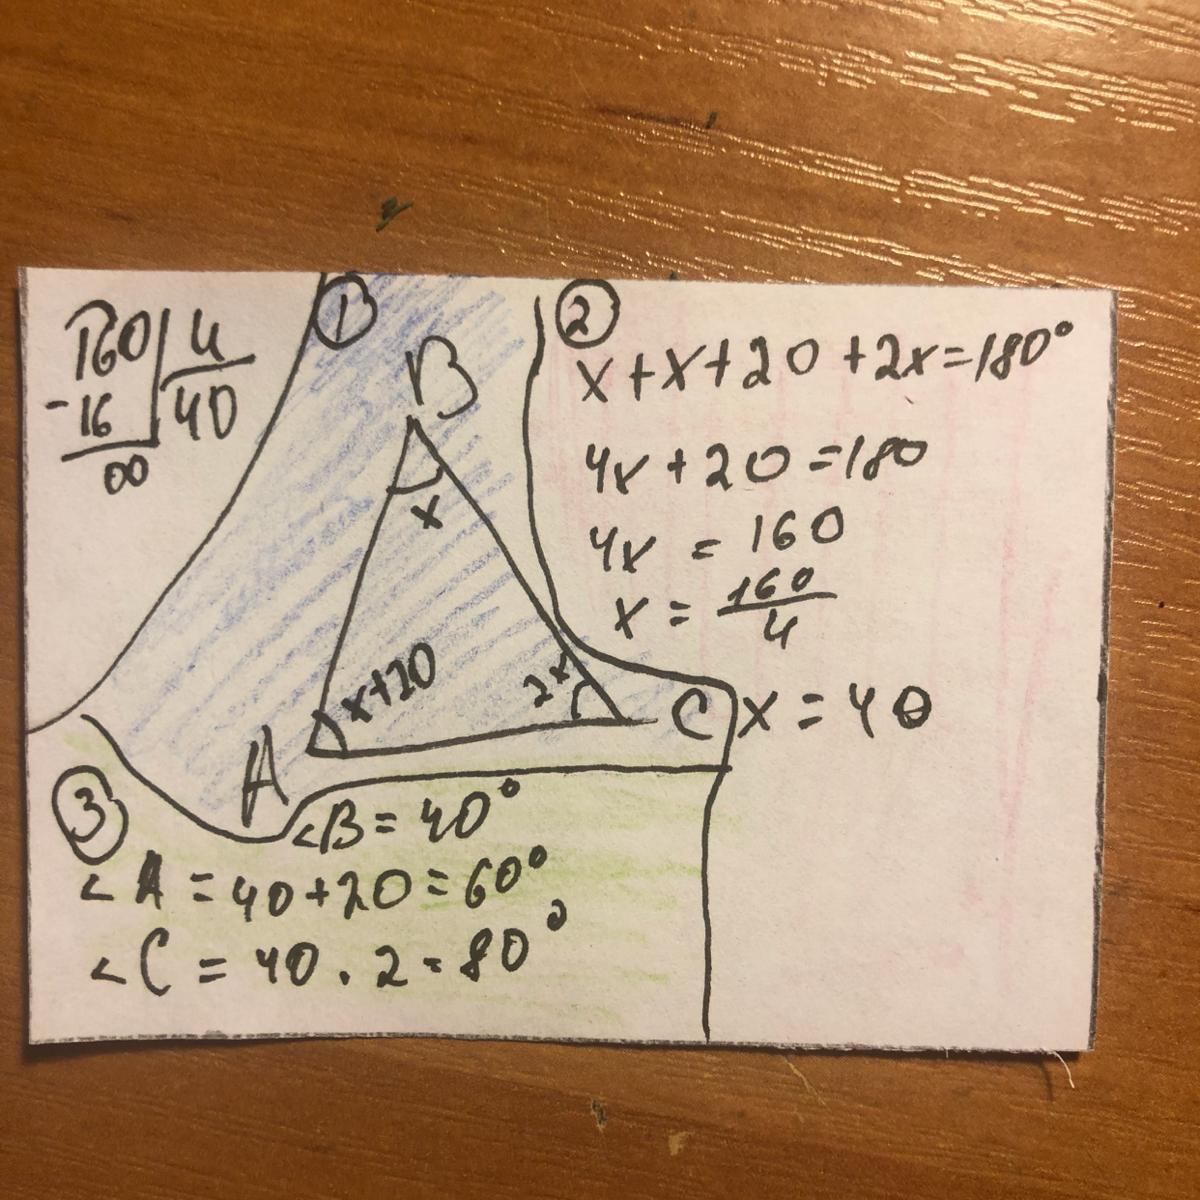 160 4
-16 40
00
1
B
x
x+20
2x
A
C
2
x+x+20+2x=180°
4x+20=180
4x = 160
x = 160/4
x = 40
3
<B=40°
<A=40+20=60°
<C=40.2=80°